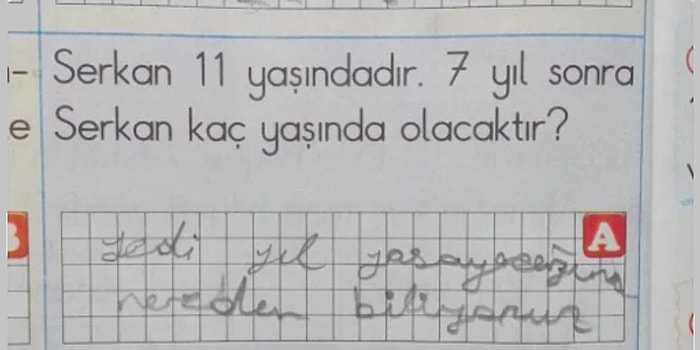 Serkan 11 yaşındadır. 7 yıl sonra
e Serkan kaç yaşında olacaktır?
A
yedi yıl yaşayacağını
nerden biliyonuz